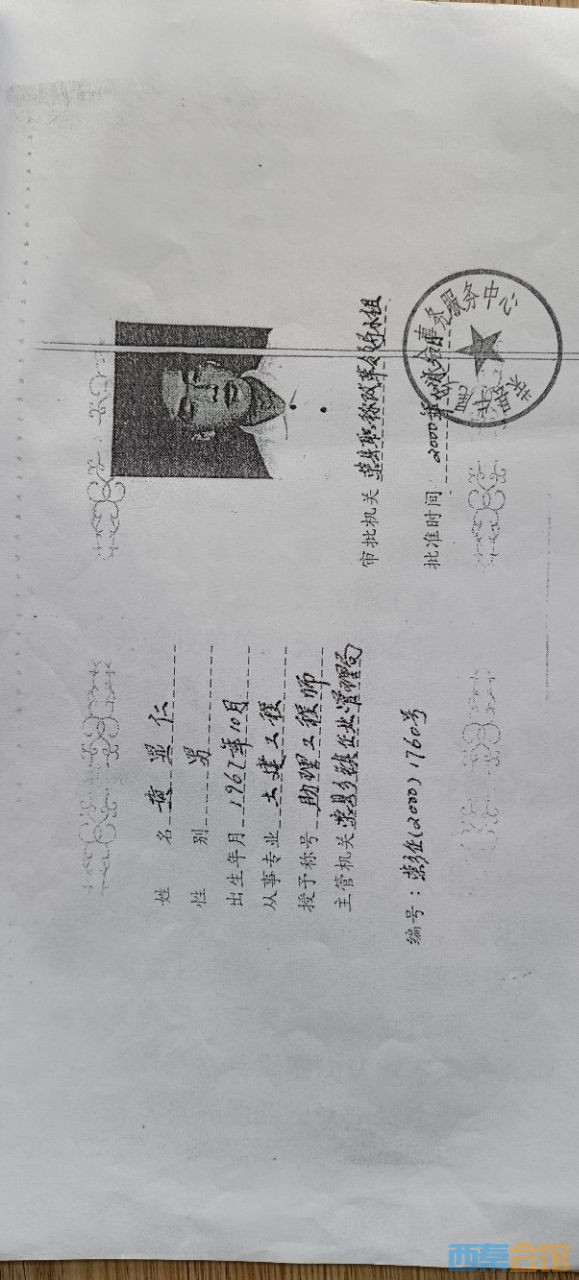 姓 名 黄显仁
性 别 男
出生年月 1967年10月
从事专业 土建工程
授予称号 助理工程师
主管机关 荣县乡镇企业管理局
编号:荣乡企(2000)1760号
审批机关 荣县职称改革领导小组
批准时间 2000年
事务服务中心
西秦会馆